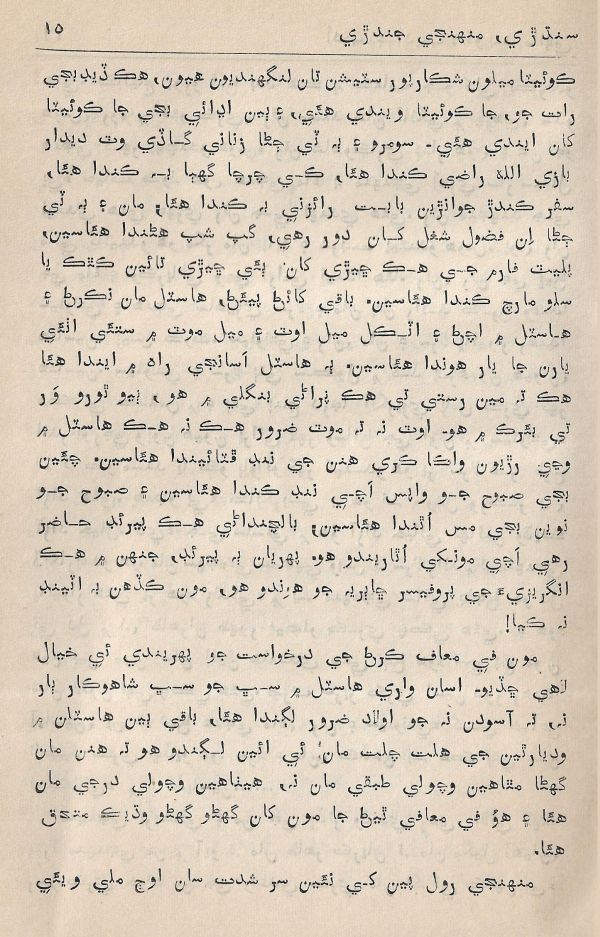 سنڌڙي، منهنجي جندڙي ١٥
ڪوئيٽا ميلون شڪارپور سٽيشن تان لنگهنديون هيون، هڪ ڏيڍ بجي
رات جو، جا ڪوئيٽا ويندي هئي، ۽ ٻين اڍائي بجي جا ڪوئيٽا
کان ايندي هئي۔ سومرو ۽ ٻہ ٽي ڄڻا زناني گاڏي وٽ ديدار
بازي الله راضي ڪندا هئا، ڪي چرچا گهٻا بہ ڪندا هئا،
سفر ڪندڙ جوانڙين بابت رائزني بہ ڪندا هئا، مان ۽ ٻہ ٽي
ڄڻا اِن فضول شغل کان دور رهي، گپ شپ هڻندا هئاسين،
پليٽ فارم جي هڪ ڇيڙي کان ٻئي ڇيڙي تائين کٽڪ يا
سلو مارچ ڪندا هئاسين. باقي کائڻ پيئڻ، هاسٽل مان نڪرڻ ۽
هاسٽل ۾ اچڻ ۽ اٽڪل ميل اوت ۽ ميل موٽ ۾ ستئي اٺئي
يارن جا يار هوندا هئاسين. ٻہ هاسٽل اَسانجي راہ ۾ ايندا هئا
هڪ تہ مين رستي تي هڪ پراڻي بنگلي ۾ هو، ٻيو ٿورو وَر
تي ٻئرڪ ۾ هو. اوت نہ تہ موٽ ضرور هڪ نہ هڪ هاسٽل ۾
وڃي رڙيون واڪا ڪري هنن جي ننڊ ڦٽائيندا هئاسين. چئين
بجي صبوح جو واپس اَچي ننڊ ڪندا هئاسين ۽ صبوح جو
نوين بجي مس اُٿندا هئاسين. بالچنداڻي هڪ پيرئڊ حاضر
رهي اَچي مونکي اُٿاريندو هو. پهريان ٻہ پيرئڊ، جنهن ۾ هڪ
انگريزيءَ جي پروفيسر ڇاٻريہ جو هوندو هو، مون ڪڏهن بہ اٽينڊ
نہ ڪيا!
مون في معاف ڪرڻ جي درخواست جو پهريندي ئي خيال
لاهي ڇڏيو. اسان واري هاسٽل ۾ سڀ جو سڀ شاهوڪار ٻار
نہ، تہ آسودن نہ جو اولاد ضرور لڳندا هئا، باقي ٻين هاسٽلن ۾
وديارٿين جي هلت چلت مان ئي ائين لڳندو هو تہ هنن مان
گهڻا مٿاهين وچولي طبقي مان نہ، هيٺاهين وچولي درجي مان
هئا ۽ هوُ في معافي ٿيڻ جا مون کان گهڻو گهڻو وڌيڪ مستحق
هئا.
منهنجي رول پين کي نئين سر شدت سان اوج ملي ويئي